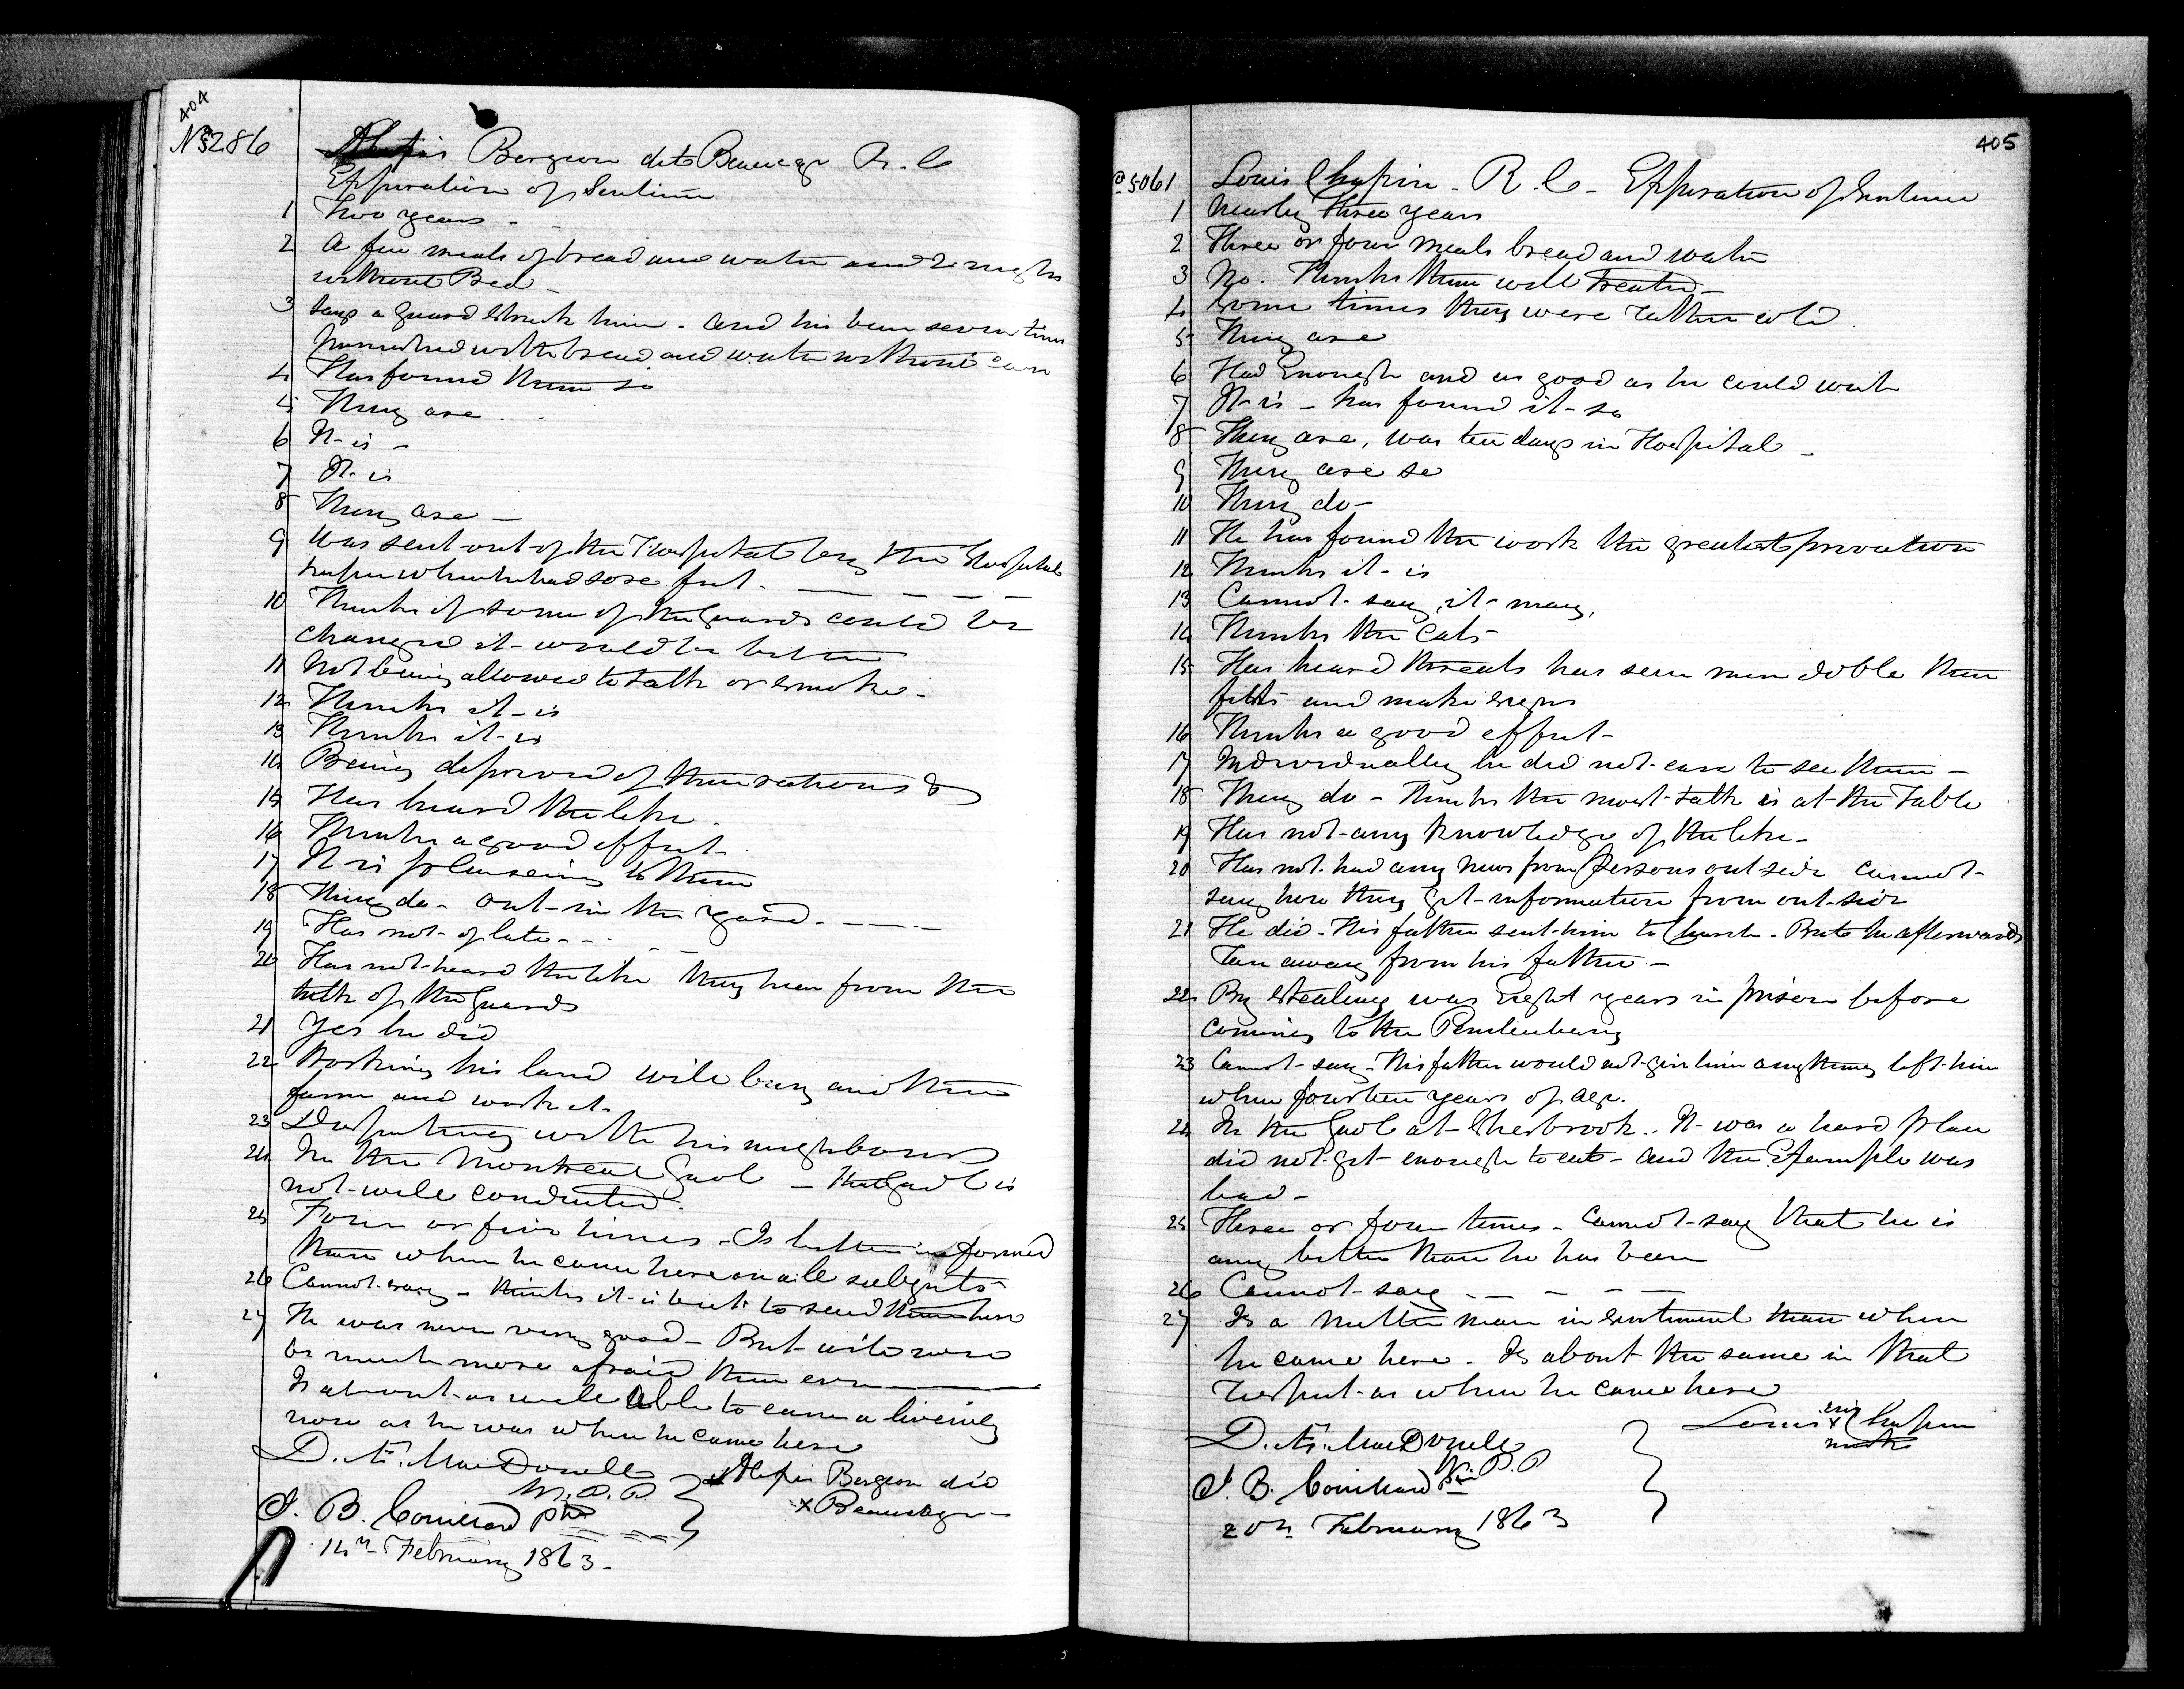 404
No 5286
Alexis Bergeron dit Beausage R. C
Expiration of Sentence
1 Two years -
2 A few meals of bread and water and 2 nights
without Bed -
3 Says a guard struck him - and his been seven times
punished with bread and water without
4 Has found them so
5 They are
6 It is -
7 It is
8 They are -
9 Was sent out of the Hospital by the Hospital
keeper when he had sore feet -
10 Thinks if some of the Guards could be
changed it would be better
11 Not being allowed to talk or smoke -
12 Thinks it is
13 Thinks it is
14 Being deprived of their rations &
15 Has heard the like.
16 Thinks a good effect -
17 It is pleaseing to them
18 They do - out in the yard -
19 Has not of late -
20 Has not heard the like they hear from the
talk of the Guards
21 Yes he did
22 Working his land will buy another
farm and work it -
23 Disputing with his neighbours
24 In the Montreal Gaol - the Gaol is
not well conducted.
25 Four or five times - Is better informed
than when he came here on all subjects
26 Cannot say - thinks it is best to send them here
27 He was never very good - But will now
be much more afraid than ever
Is about as well able to earn a liveing
now as he was when he came here
D. Æ. MacDonell
W. P. P.
J. B. Couillard Ptr
Alexis Bergeron did
x Beausage -
14th February 1863 -
405
o 5061
Louis Chapin - R. C - Expiration of Sentence
1 Nearly three years
2 Three or four meals bread and water
3 No. Thinks them well treated -
4 Some times they were rather cold
5 They are
6 Had Enough and as good as he could wish
7 It is - has found it so
8 They are, was ten days in Hospital -
9 They are so
10 They do -
11 He has found the work the greatest privation
12 Thinks it is
13 Cannot say, it may,
14 Thinks the Cats
15 Has heard threats has seen men doble their
fists and make signs
16 Thinks a good effect -
17 Individually he did not care to see them -
18 They do - Thinks the most talk is at the Table
19 Has not any knowledge of the like -
20 Has not had any news from Persons out side Cannot
say how they get information from out side
21 He did - His father sent him to Church - But he afterwards
ran away from his father -
22 By stealing was Eight years in prison before
coming to the Penitentiary
23 Cannot say - His father would not give him anything left him
when fourteen years of age.
24 In the Gaol at Sherbrook. It was a hard place
did not get enough to eat - and the Example was
bad -
25 Three or four times - Cannot say that he is
any better than he has been
26 Cannot say -
27 Is a better man in sentiment than when
he came here - Is about the same in that
respect as when he came here
D. Æ. MacDonell
W. P. P
J. B. Couillard Ptr
Louis his x mark Chapin
20th February 1863